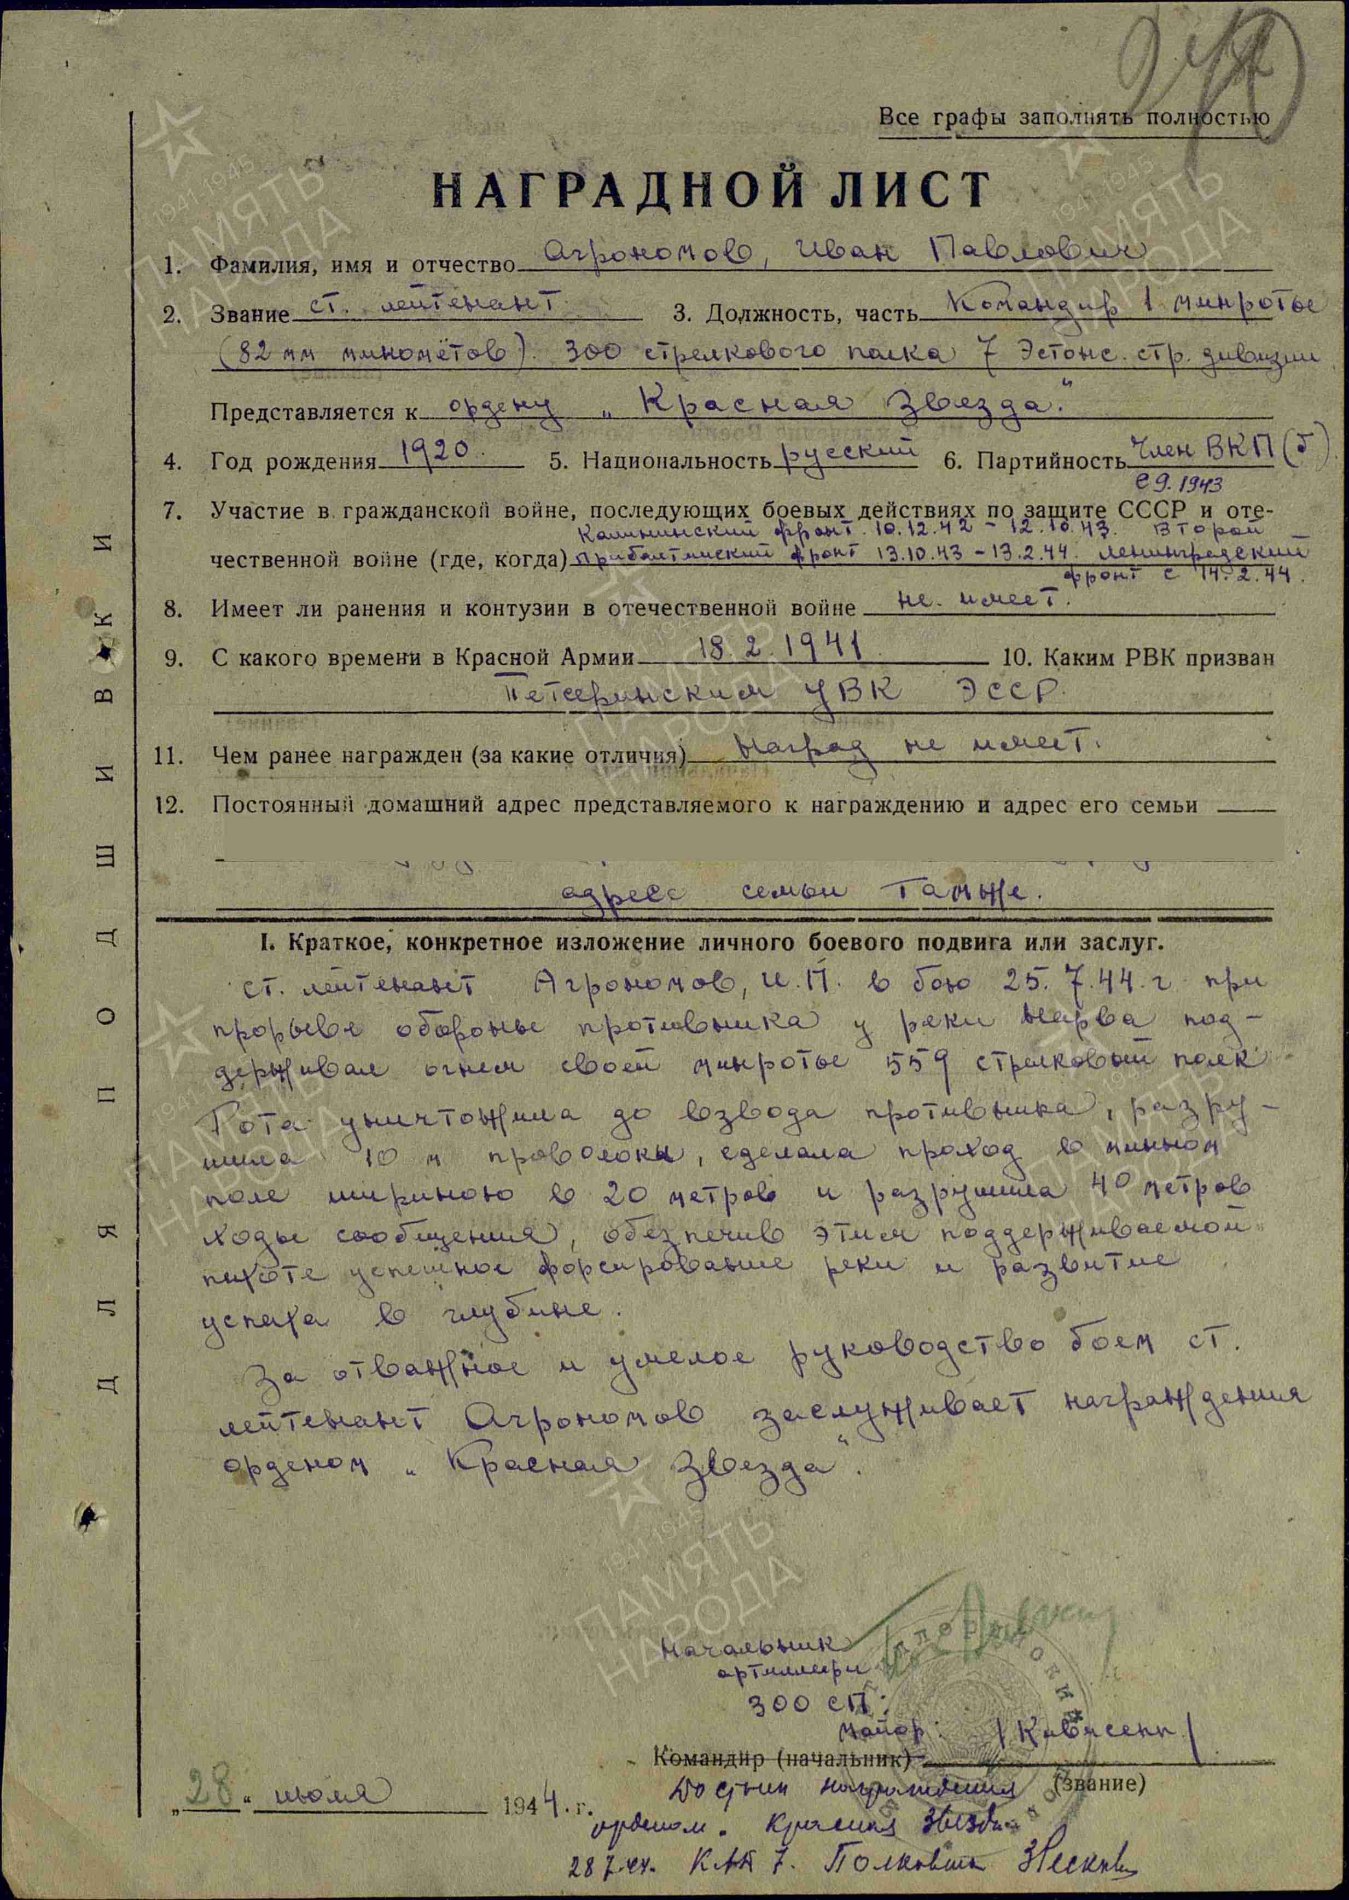 Все графы заполнять полностью
НАГРАДНОЙ ЛИСТ
1. Фамилия, имя и отчество Агрономов, Иван Павлович
2. Звание ст. лейтенант 3. Должность, часть Командир 1 минроты
(82 мм минометов). 300 стрелкового полка 7 Эстонс. стр. дивизии
Представляется к ордену „Красная Звезда."
4. Год рождения 1920. 5. Национальность русский 6. Партийность Член ВКП(б)
с 9.1943
7. Участие в гражданской войне, последующих боевых действиях по защите СССР и оте-
Калининский фронт. 10.12.42 – 12.10.43. Второй
чественной войне (где, когда) Прибалтийский фронт 13.10.43 – 13.2.44. Ленинградский
фронт с 14.2.44.
8. Имеет ли ранения и контузии в отечественной войне не имеет.
9. С какого времени в Красной Армии 18.2.1941 10. Каким РВК призван
Петсеринским УВК ЭССР.
11. Чем ранее награжден (за какие отличия) Наград не имеет.
12. Постоянный домашний адрес представляемого к награждению и адрес его семьи
адрес семьи тамже.
I. Краткое, конкретное изложение личного боевого подвига или заслуг.
ст. лейтенант Агрономов, И.П. в бою 25.7.44 г. при
прорыве обороны противника у реки Нарва под-
держивал огнем своей минроты 559 стрелковый полк
Рота уничтожила до взвода противника, разру-
шила 10 м проволоки, сделала проход в минном
поле шириною в 20 метров и разрушила 40 метров
ходы сообщения, обезпечив этим поддерживаемой
пихоте успешное форсирование реки и развитие
успеха в глубине.
За отважное и умелое руководство боем ст.
лейтенант Агрономов заслуживает награждения
орденом „Красная Звезда".
Начальник
артиллери
300 СП:
майор: /Кивисепп/
Командир (начальник)
(звание)
„28" июля 1944 г.
Достоин награждения
орденом. Красная Звезда
28.7.44. КАД 7. Полковник
ДЛЯ ПОДШИВКИ
1941-1945
ПАМЯТЬ
НАРОДА